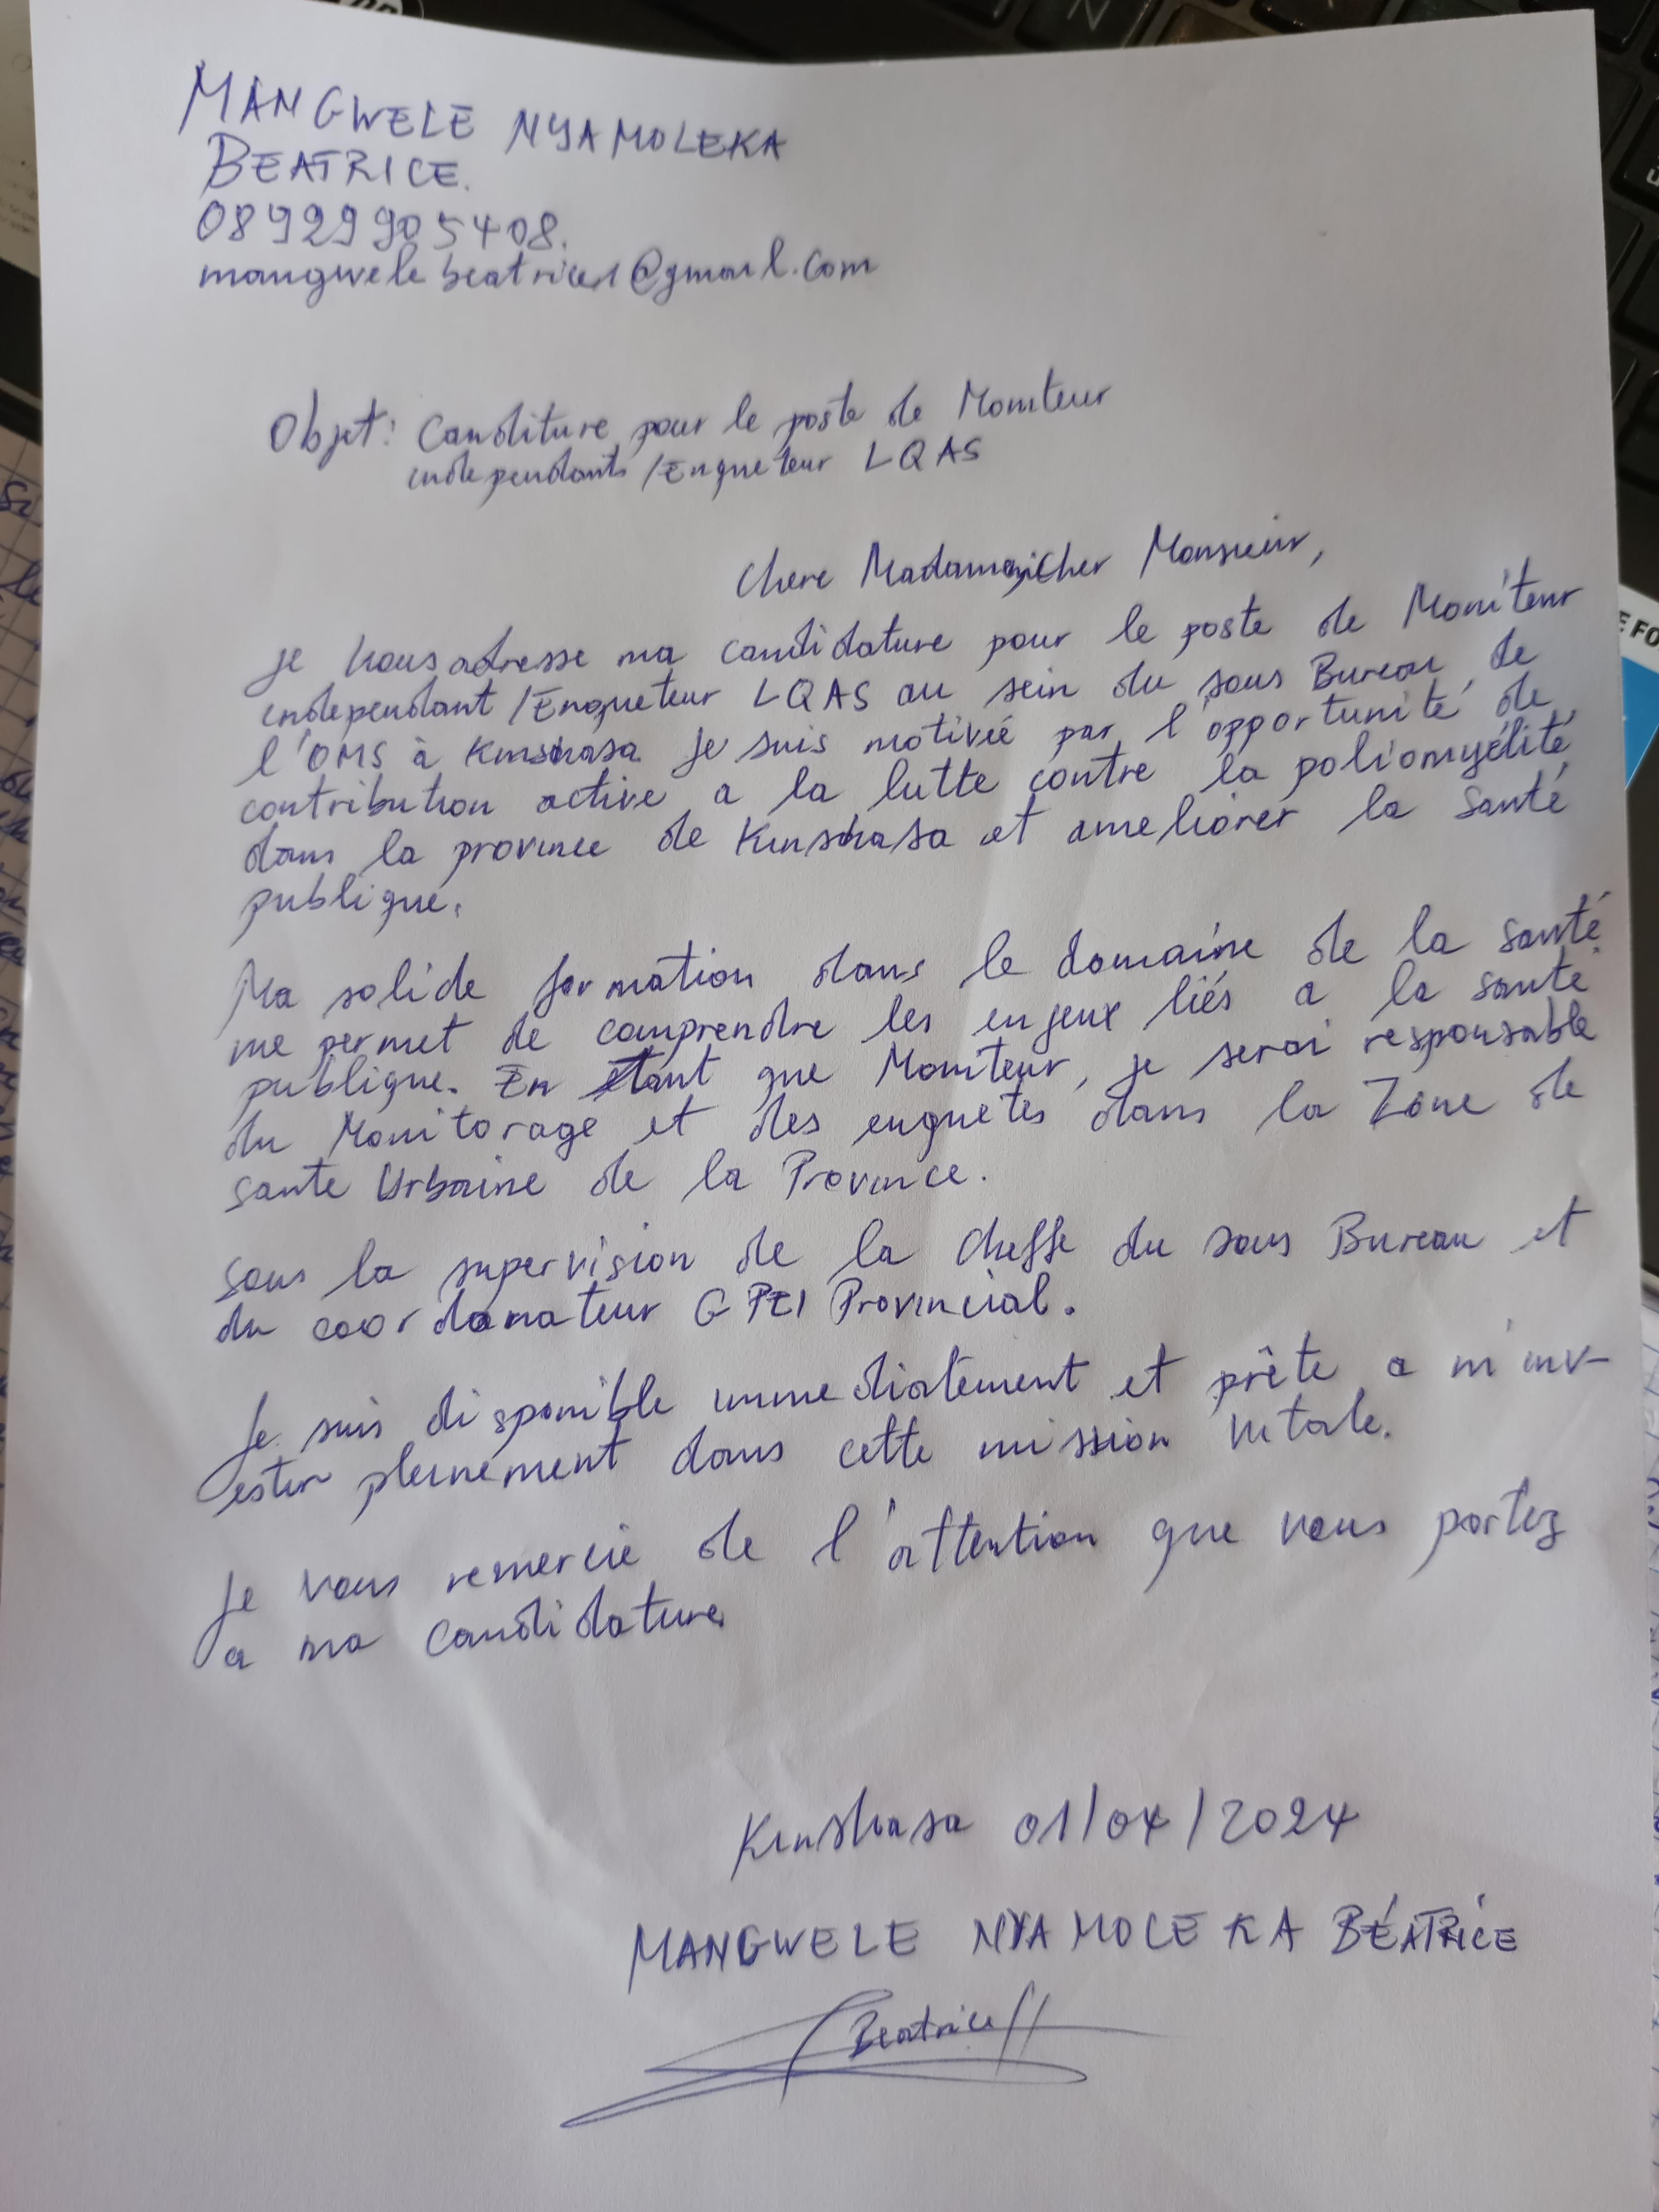 MANGWELE NYAMOLEKA
BEATRICE.
08929905408.
mangwelebeatrice1@gmail.com
Objet: Canditure pour le poste de Moniteur
independants /Enqueteur LQAS
Chere Madame, Cher Monsieur,
Je vous adresse ma candidature pour le poste de Moniteur
independant /Enqueteur LQAS au sein du sous Bureau de
l'OMS à Kinshasa. Je suis motivée par l'opportunité de
contribution active a la lutte contre la poliomyélite
dans la province de Kinshasa et ameliorer la santé
publique.
Ma solide formation dans le domaine de la santé
me permet de comprendre les enjeux liés a la santé
publique. En tant que Moniteur, je serai responsable
du Monitorage et des enquetes dans la Zone de
sante Urbaine de la Province.
Sous la supervision de la cheffe du sous Bureau et
du coordonateur GPEI Provincial.
Je suis disponible immediatement et prête a m'inv-
estir pleinement dans cette mission vitale.
Je vous remercie de l'attention que vous portez
a ma candidature
Kinshasa 01/04/2024
MANGWELE NYAMOLEKA BÉATRICE
Beatrice